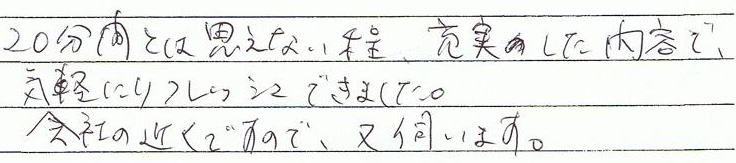 20分間とは思えない程、充実した内容で、
気軽にリフレッシュできました。
会社の近くですので、又伺います。